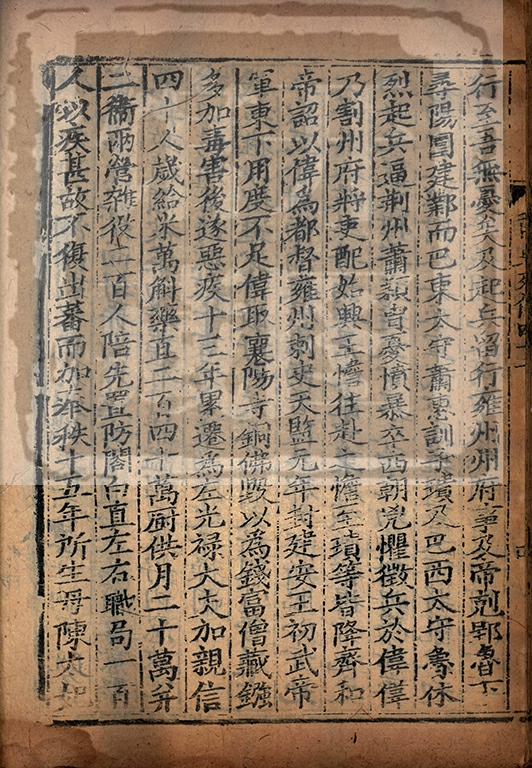 行至吾無憂矣及起兵留行雍州州府事及帝剋郢魯下
尋陽圍建鄴而巴東太守蕭惠訓子璝及巴西太守魯休
烈起兵逼荆州蕭穎胄憂憤暴卒西朝兇懼徵兵於偉偉
乃割州府將吏配始興王憺往赴之憺至璝等皆降齊和
帝詔以偉為都督雍州刺史天監元年封建安王初武帝
軍東下用度不足偉取襄陽寺銅佛毀以為錢富僧藏鏹
多加毒害後遂惡疾十三年累遷為左光禄大夫加親信
四十人歲給米萬斛藥直二百四十萬厨供月二十萬并
二衛兩營雜役二百人陪先置防閤白直左右職局一百
人以疾甚故不復出蕃而加奉秩十五年所生母陳太妃